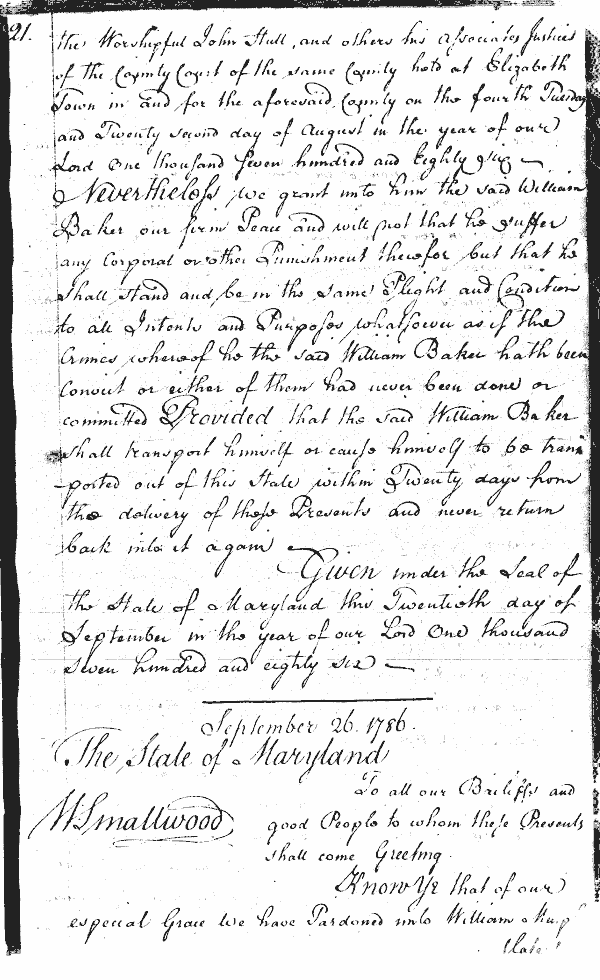 21.
the Worshipful John Stull, and others his Associates Justices
of the County Court of the same County held at Elizabeth
Town in and for the aforesaid County on the fourth Tuesday
and Twenty second day of August in the year of our
Lord One thousand seven hundred and Eighty six
Nevertheless we grant unto him the said William
Baker our firm Peace and will not that he suffer
any Corporal or other Punishment therefor but that he
shall stand and be in the same Plight and Condition
to all Intents and Purposes whatsoever as if the
Crimes whereof he the said William Baker hath been
Convict or either of them had never been done or
committed Provided that the said William Baker
shall transport himself or cause himself to be trans
-ported out of this State within Twenty days from
the delivery of these Presents and never return
back into it again
Given under the Seal of
the State of Maryland this Twentieth day of
September in the year of our Lord One thousand
seven hundred and eighty six
September 26. 1786.
The State of Maryland
To all our Bailiffs and
WSmallwood
good People to whom these Presents
shall come Greeting.
Know Ye that of our
especial Grace we have Pardoned unto William